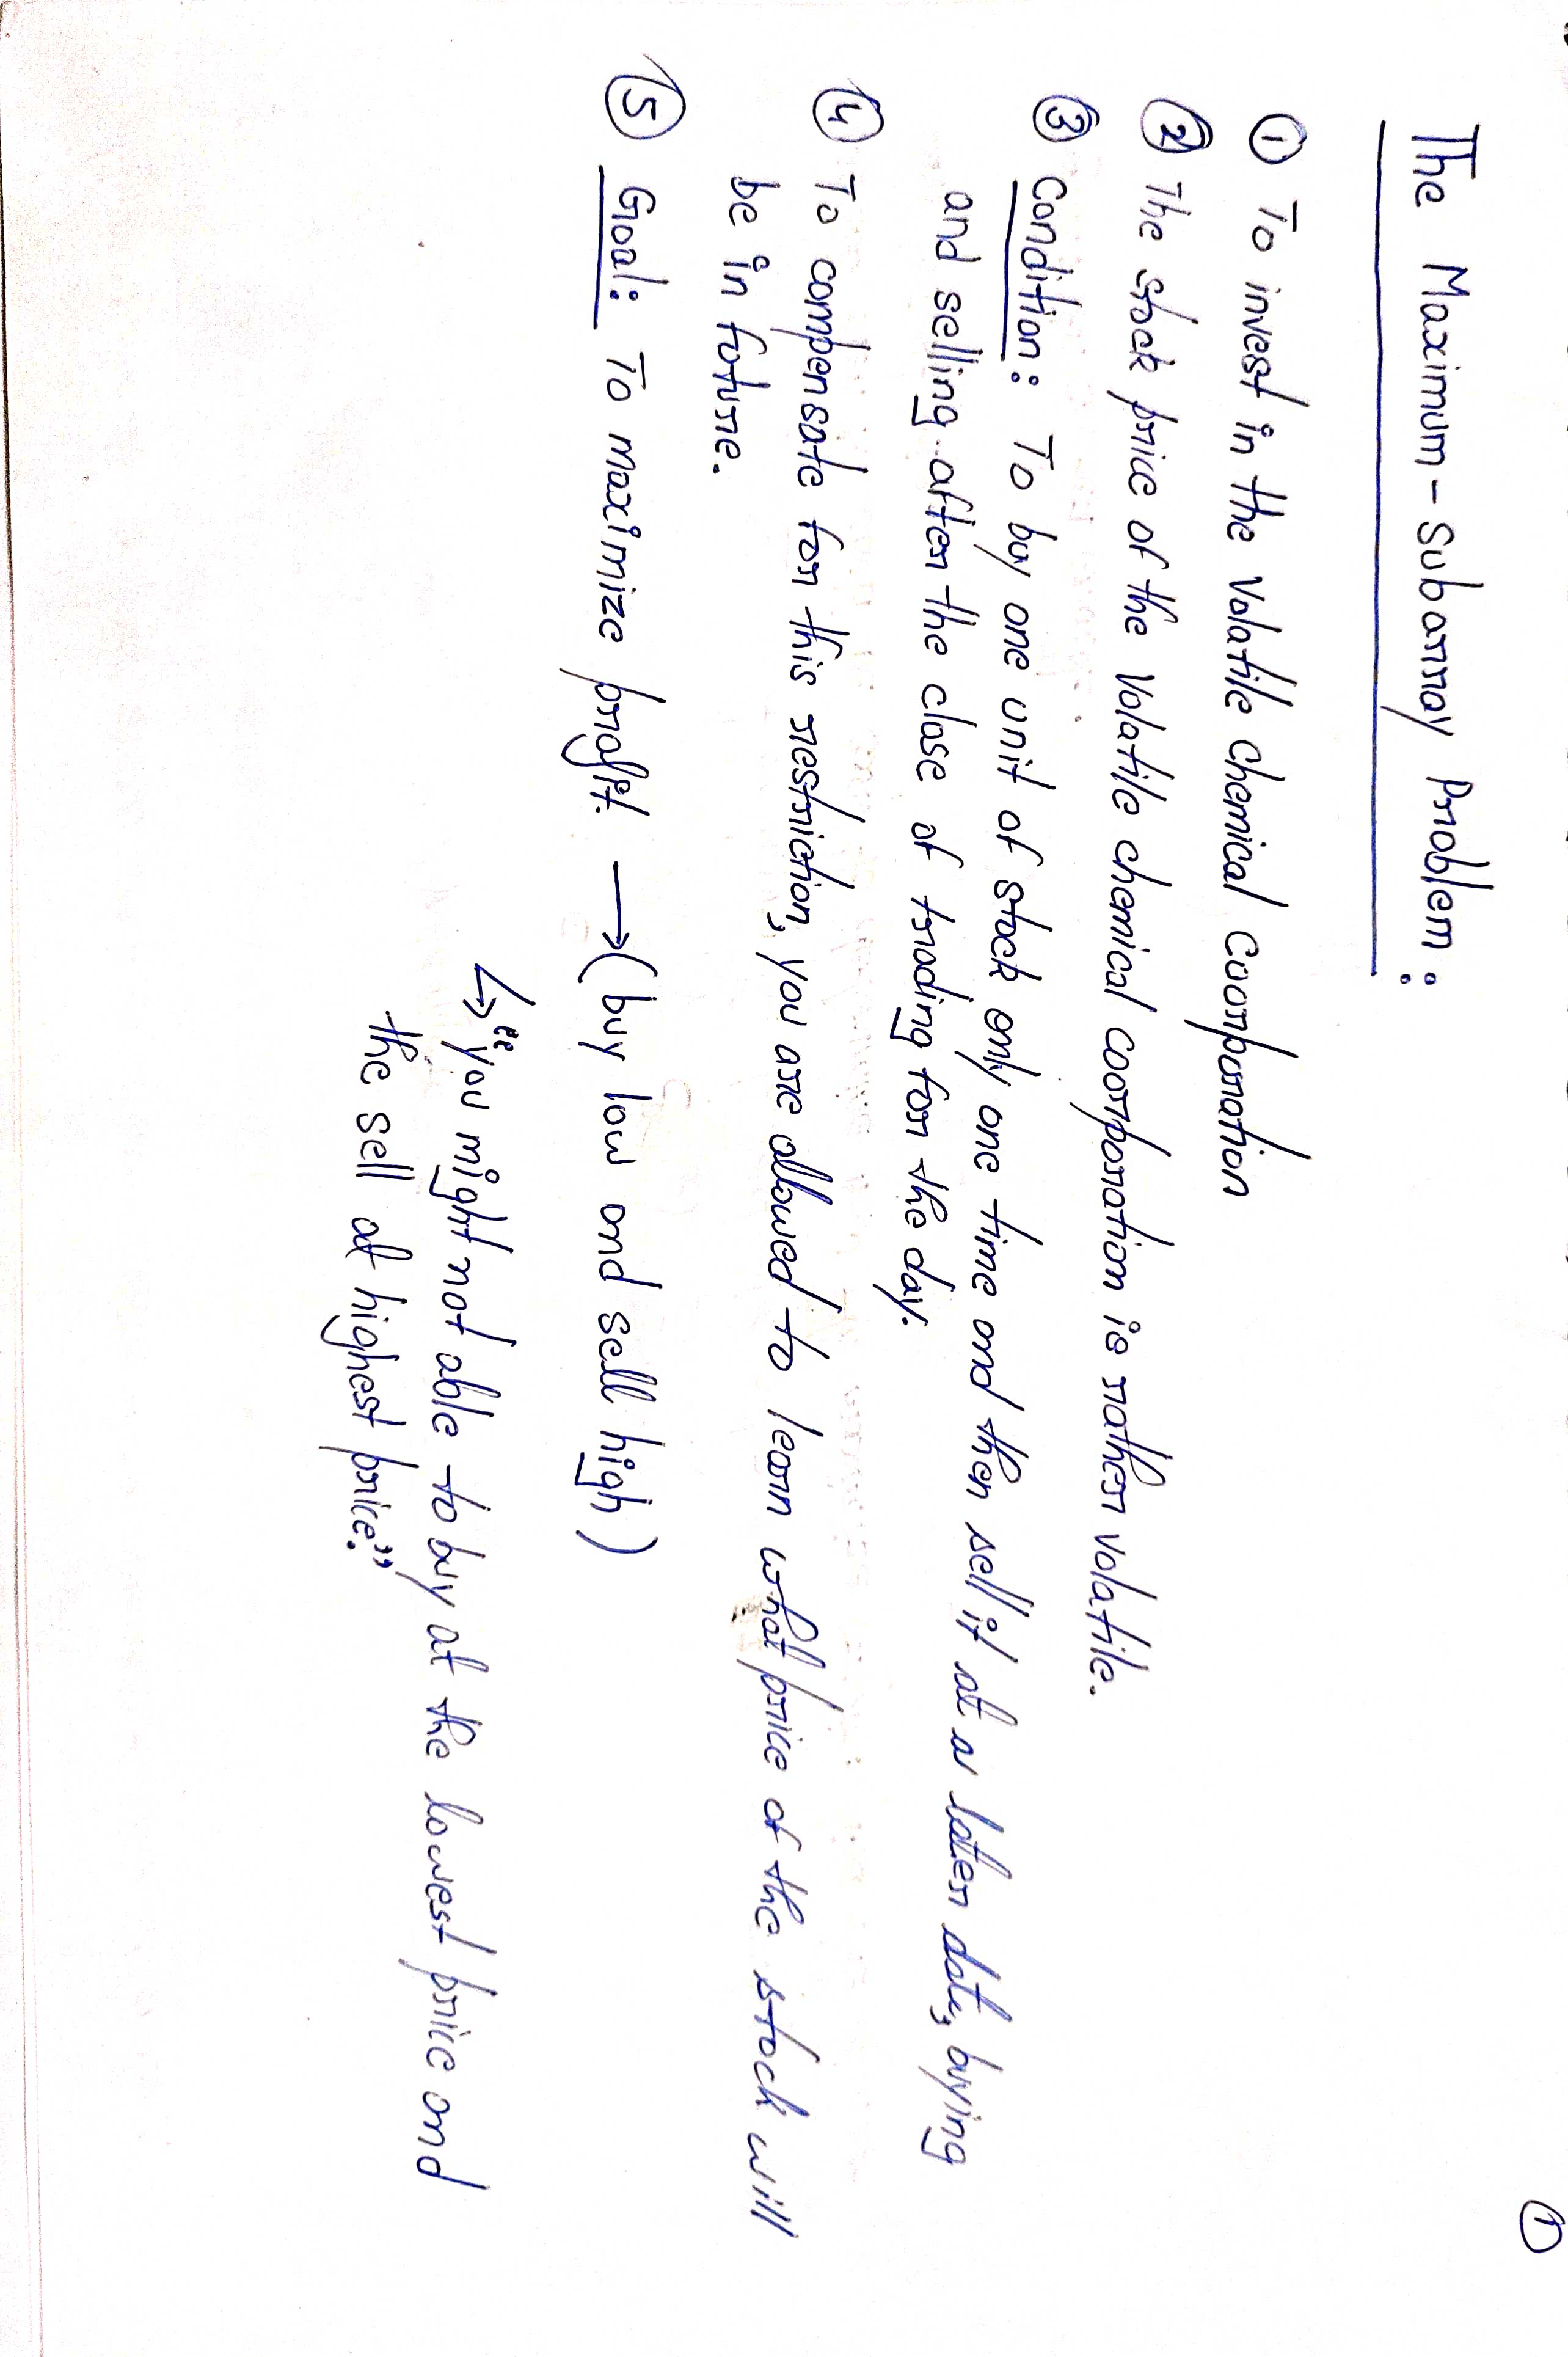 ①
The Maximum-Subarray Problem:
① To invest in the Volatile chemical Coorporation
② The stock price of the Volatile chemical coorporation is rather volatile.
③ Condition: To buy one unit of stock only one time and then sell it at a later date, buying
and selling after the close of trading for the day.
④ To compensate for this restriction, you are allowed to learn what price of the stock will
be in future.
⑤ Goal: To maximize profit. → (buy low and sell high)
↳ "you might not able to buy at the lowest price and
the sell at highest price."